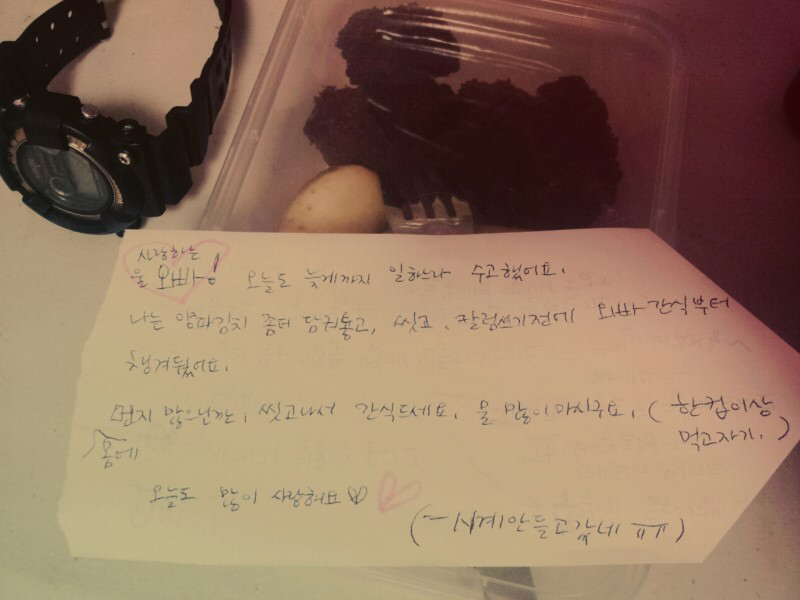 사랑하는
울 오빠! 오늘도 늦게까지 일하느라 수고했어요.
나는 양파김치 좀더 담궈놓고, 씻고, 칼럼쓰기전에 오빠 간식부터
챙겨뒀어요.
몸에
먼지 많으닌깐, 씻고나서 간식드세요. 물 많이마시구요. (한컵이상
먹고자기.)
오늘도 많이 사랑해요
(-시계안들고갔네 ㅠㅠ)